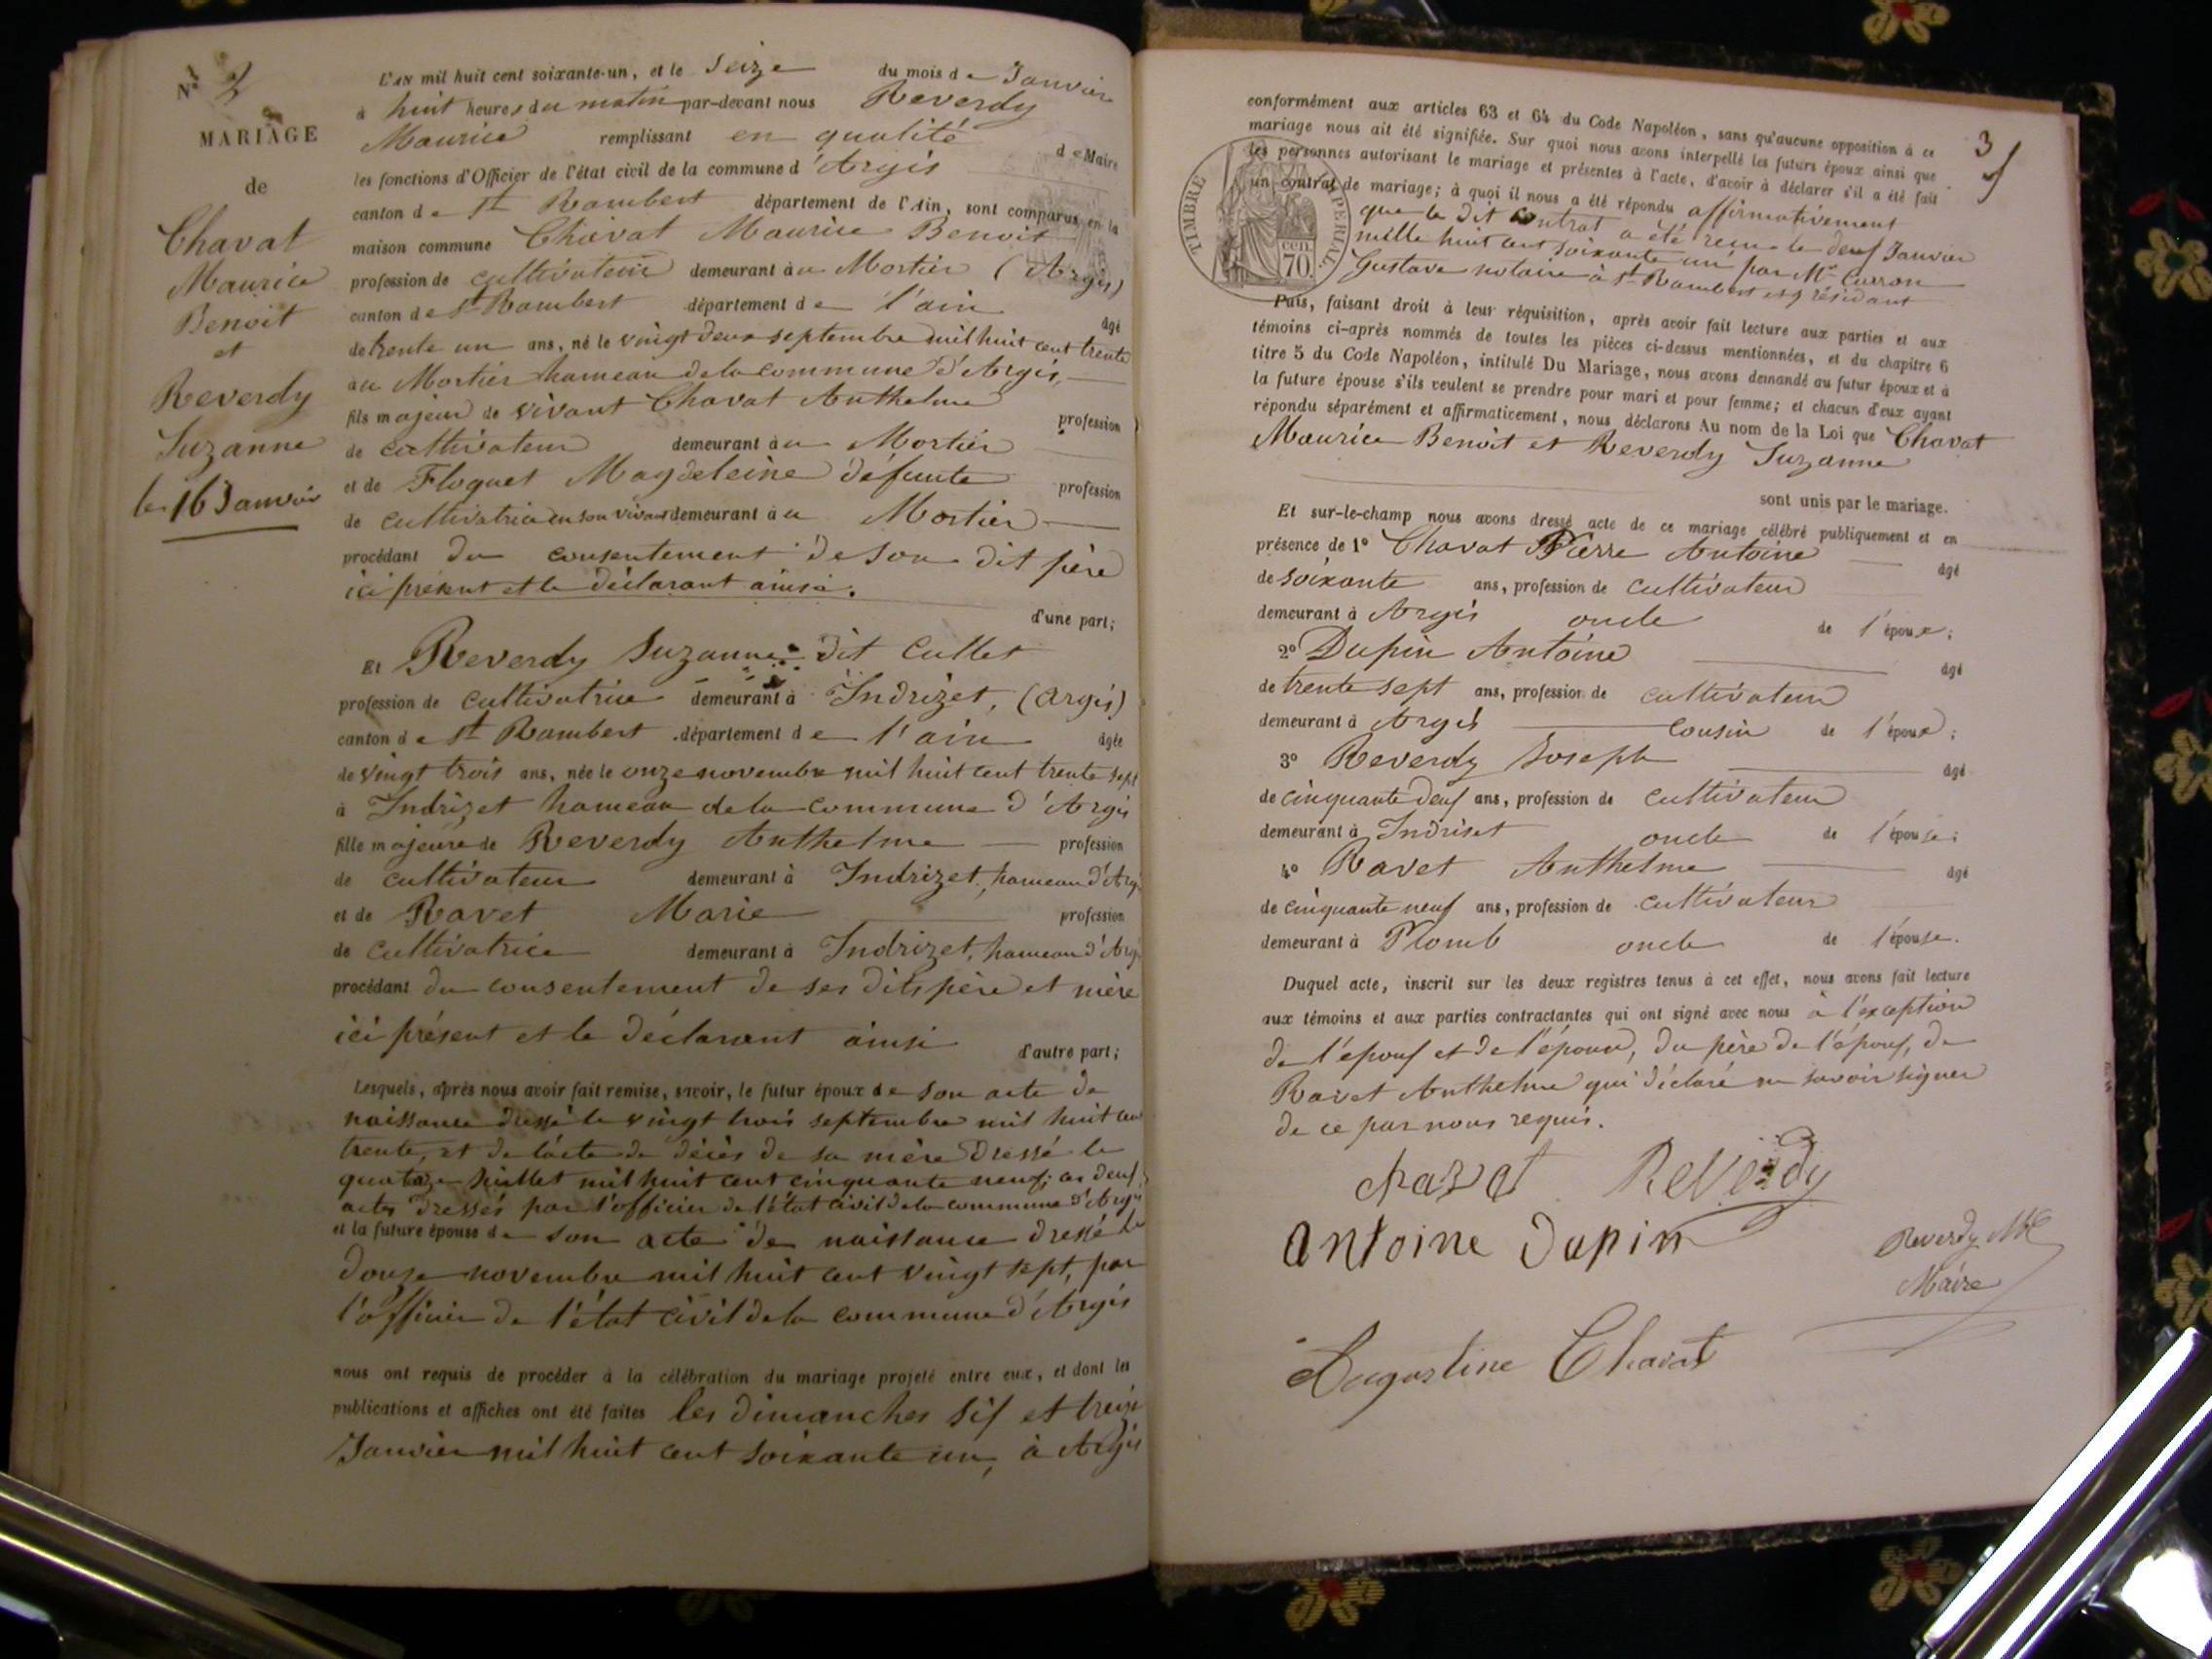 N° 2
MARIAGE
de
Chavat
Maurice
Benoit
et
Reverdy
Suzanne
le 16 Janvier
L'AN mil huit cent soixante-un, et le Seize du mois de Janvier
à huit heures du matin par-devant nous Reverdy
Maurice remplissant en qualité de Maire
les fonctions d'Officier de l'état civil de la commune d'Argis
canton de St Rambert département de l'Ain, sont comparus en la
maison commune Chavat Maurice Benoit
profession de cultivateur demeurant au Mortier (Argis)
canton de St Rambert département de l'ain âgé
de trente un ans, né le vingt deux septembre mil huit cent trente
au Mortier hameau de la commune d'Argis,
fils majeur de vivant Chavat Anthelme profession
de cultivateur demeurant au Mortier
et de Floquet Magdeleine défunte profession
de cultivatrice en son vivant demeurant au Mortier
procédant du consentement de son dit père
ici présent et le déclarant ainsi.
d'une part;
Et Reverdy Suzanne dit Cullet
profession de cultivatrice demeurant à Indrizet, (argis)
canton de St Rambert département de l'ain âgée
de vingt trois ans, née le onze novembre mil huit cent trente sept
à Indrizet hameau de la commune d'Argis
fille majeure de Reverdy Anthelme profession
de cultivateur demeurant à Indrizet, hameau d'Arg
et de Ravet Marie profession
de cultivatrice demeurant à Indrizet, hameau d'Arg
procédant du consentement de ses dits père et mère
ici présent et le déclarant ainsi
d'autre part;
Lesquels, après nous avoir fait remise, savoir, le futur époux de son acte de
naissance dressé le vingt trois septembre mil huit cent
trente, et de l'acte de décès de sa mère dressé le
quatorze Juillet mil huit cent cinquante neuf; ces deux
actes dressés par l'officier de l'état civil de la commune d'Argis
et la future épouse de son acte de naissance dressé le
douze novembre mil huit cent vingt sept, par
l'officier de l'état civil de la commune d'Argis
nous ont requis de procéder à la célébration du mariage projeté entre eux, et dont les
publications et affiches ont été faites les dimanches six et treize
Janvier mil huit cent soixante un, à Argis
3
TIMBRE IMPERIAL
70 cen.
conformément aux articles 63 et 64 du Code Napoléon, sans qu'aucune opposition à ce
mariage nous ait été signifiée. Sur quoi nous avons interpellé les futurs époux ainsi que
les personnes autorisant le mariage et présentes à l'acte, d'avoir à déclarer s'il a été fait
un contrat de mariage; à quoi il nous a été répondu affirmativement
que le dit contrat a été reçu le deux Janvier
mille huit cent soixante un par Me Carron
Gustave notaire à St Rambert et y résidant
Puis, faisant droit à leur réquisition, après avoir fait lecture aux parties et aux
témoins ci-après nommés de toutes les pièces ci-dessus mentionnées, et du chapitre 6
titre 5 du Code Napoléon, intitulé Du Mariage, nous avons demandé au futur époux et à
la future épouse s'ils veulent se prendre pour mari et pour femme; et chacun d'eux ayant
répondu séparément et affirmativement, nous déclarons Au nom de la Loi que Chavat
Maurice Benoit et Reverdy Suzanne
sont unis par le mariage.
Et sur-le-champ nous avons dressé acte de ce mariage célébré publiquement et en
présence de 1° Chavat Pierre Antoine âgé
de soixante ans, profession de cultivateur
demeurant à Argis oncle de l'époux;
2° Dupin Antoine âgé
de trente sept ans, profession de cultivateur
demeurant à Argis cousin de l'époux;
3° Reverdy Joseph âgé
de cinquante deux ans, profession de cultivateur
demeurant à Indriset oncle de l'épouse;
4° Ravet Anthelme âgé
de cinquante neuf ans, profession de cultivateur
demeurant à Plomb oncle de l'épouse.
Duquel acte, inscrit sur les deux registres tenus à cet effet, nous avons fait lecture
aux témoins et aux parties contractantes qui ont signé avec nous à l'exception
de l'époux et de l'épouse, du père de l'époux, de
Ravet Anthelme qui déclaré ne savoir signer
de ce par nous requis.
chavat Reverdy
antoine Dupin
Reverdy Mce
Maire
Augustine Chavat